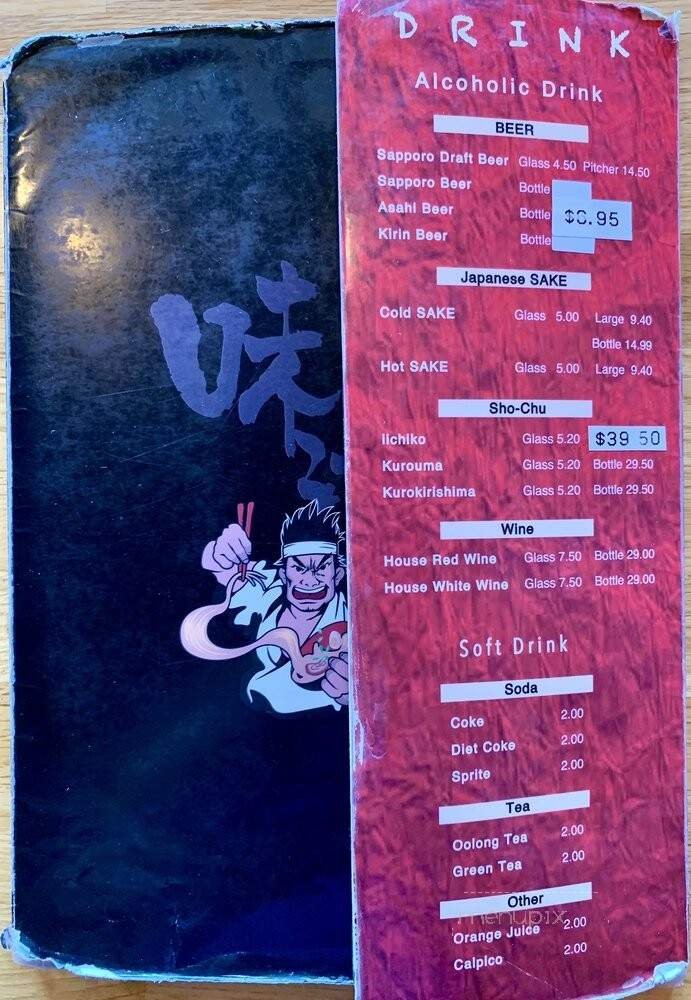 DRINK
Alcoholic Drink
BEER
Sapporo Draft Beer Glass 4.50 Pitcher 14.50
Sapporo Beer Bottle
Asahi Beer Bottle
Kirin Beer Bottle
Japanese SAKE
Cold SAKE Glass 5.00 Large 9.40
Bottle 14.99
Hot SAKE Glass 5.00 Large 9.40
Sho-Chu
Iichiko Glass 5.20 $39 50
Kurouma Glass 5.20 Bottle 29.50
Kurokirishima Glass 5.20 Bottle 29.50
Wine
House Red Wine Glass 7.50 Bottle 29.00
House White Wine Glass 7.50 Bottle 29.00
Soft Drink
Soda
Coke 2.00
Diet Coke 2.00
Sprite 2.00
Tea
Oolong Tea 2.00
Green Tea 2.00
Other
menupix
Orange Juice 2.00
Calpico 2.00
味